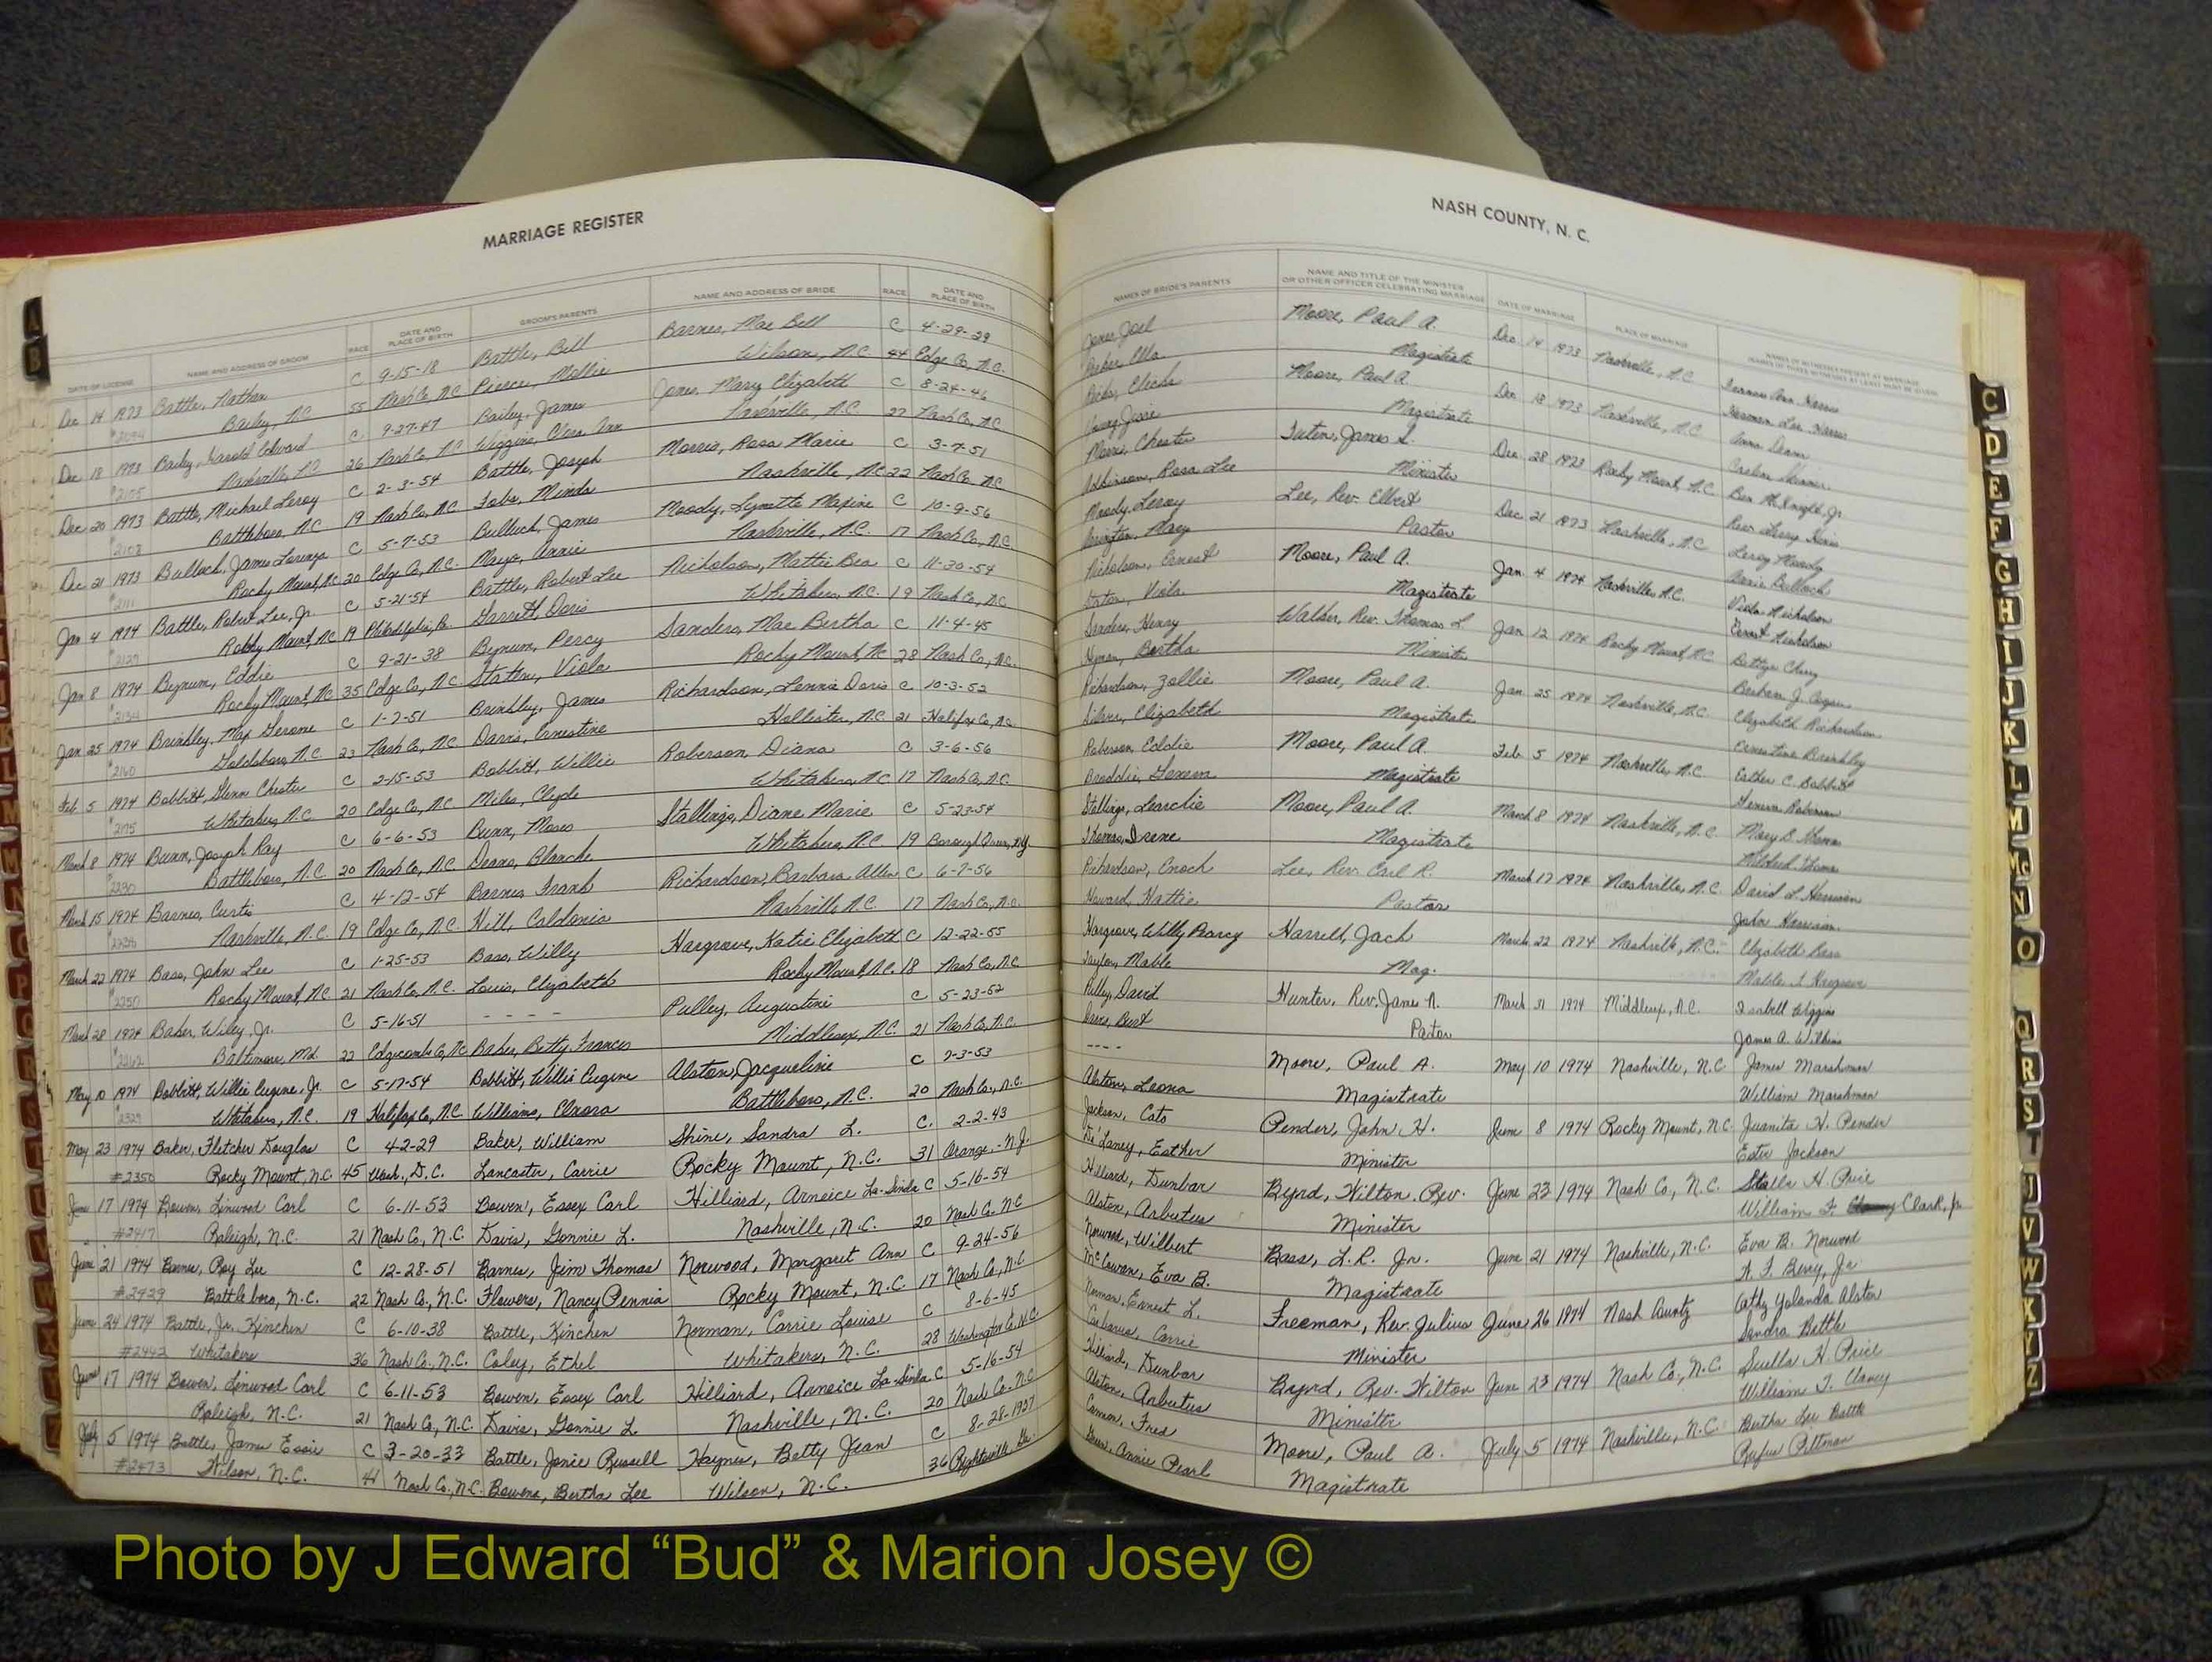 MARRIAGE REGISTER
DATE OF LICENSE NAME AND ADDRESS OF GROOM RACE DATE AND PLACE OF BIRTH GROOM'S PARENTS NAME AND ADDRESS OF BRIDE RACE DATE AND PLACE OF BIRTH
Dec 14 1973 Battle, Nathan C 9-15-18 Battle, Bill Barnes, Mae Bell C 4-29-29
Bailey, N.C. 55 Nash Co, N.C. Pierce, Mollie Wilson, N.C. 44 Edge Co, N.C.
Dec 18 1973 Bailey, Harold Edward C 9-27-47 Bailey, James Jones, Mary Elizabeth C 8-24-46
Nashville, N.C. 26 Nash Co, N.C. Wiggins, Clara Ann Nashville, N.C. 27 Nash Co, N.C.
Dec 20 1973 Battle, Michael Leroy C 2-3-54 Battle, Joseph Morris, Rosa Marie C 3-7-51
Battleboro, N.C. 19 Nash Co, N.C. Minda Nashville, N.C. 22 Nash Co, N.C.
Dec 21 1973 Bullock, James Lorenzo C 5-7-53 Bulluck, James Moody, Lynette Maxine C 10-9-56
Rocky Mount, N.C. 20 Edge Co, N.C. Mayo, Annie Nashville, N.C. 17 Nash Co, N.C.
Jan 4 1974 Battle, Robert Lee, Jr. C 5-21-54 Battle, Robert Lee Nicholson, Mattie Bea C 11-30-54
Rocky Mount, N.C. 19 Philadelphia, Pa. Garrett, Doris Whitakers, N.C. 19 Nash Co, N.C.
Jan 8 1974 Bynum, Eddie C 9-21-38 Bynum, Percy Sanders, Mae Bertha C 11-4-45
Rocky Mount, N.C. 35 Edge Co, N.C. Staten, Viola Rocky Mount, N.C. 28 Nash Co, N.C.
Jan 25 1974 Brinkley, Max Gerome C 1-7-51 Brinkley, James Richardson, Lennie Doris C 10-3-52
#2160 Goldsboro, N.C. 23 Nash Co, N.C. Davis, Ernestine Hollister, N.C. 21 Halifax Co, N.C.
Feb 5 1974 Bobbitt, Glenn Chester C 2-15-53 Bobbitt, Willie Roberson, Diana C 3-6-56
#2175 Whitakers, N.C. 20 Edge Co, N.C. Miles, Clyde Whitakers, N.C. 17 Nash Co, N.C.
March 8 1974 Bunn, Joseph Ray C 6-6-53 Bunn, Moses Stallings, Diane Marie C 5-23-54
#2230 Battleboro, N.C. 20 Nash Co, N.C. Deans, Blanche Whitakers, N.C. 19
March 15 1974 Barnes, Curtis C 4-12-54 Barnes, Frank Richardson, Barbara Allen C 6-7-56
Nashville, N.C. 19 Edge Co, N.C. Hill, Caldonia Nashville, N.C. 17 Nash Co, N.C.
March 22 1974 Bass, John Lee C 1-25-53 Bass, Willy Hargrove, Katie Elizabeth C 12-22-55
#2250 Rocky Mount, N.C. 21 Nash Co, N.C. Louis, Elizabeth Rocky Mount, N.C. 18 Nash Co, N.C.
March 28 1974 Baker, Wiley, Jr. C 5-16-51 - - - - Pulley, Augustine C 5-23-52
#2262 Baltimore, Md. 22 Edgecombe Co, N.C. Baker, Betty Frances Middlesex, N.C. 21 Nash Co, N.C.
May 10 1974 Bobbitt, Willie Eugene, Jr. C 5-17-54 Bobbitt, Willie Eugene Alston, Jacqueline C 7-3-53
#2329 Whitakers, N.C. 19 Halifax Co, N.C. Williams, Elnora Battleboro, N.C. 20 Nash Co., N.C.
May 23 1974 Baker, Fletcher Douglas C 4-2-29 Baker, William Shine, Sandra L. C. 2-2-43
#2350 Rocky Mount, N.C. 45 Wash., D.C. Lancaster, Carrie Rocky Mount, N.C. 31 Orange, N.J.
June 17 1974 Bowen, Linwood Carl C 6-11-53 Bowen, Essex Carl Hilliard, Arneice La-Sinda C 5-16-54
#2417 Raleigh, N.C. 21 Nash Co, N.C. Davis, Gonnie L. Nashville, N.C. 20 Nash Co. N.C.
June 21 1974 Barnes, Roy Lee C 12-28-51 Barnes, Jim Thomas Norwood, Margaret Ann C 9-24-56
#2429 Battleboro, N.C. 22 Nash Co., N.C. Flowers, Nancy Pennia Rocky Mount, N.C. 17 Nash Co, N.C.
June 24 1974 Battle, Jr. Kinchen C 6-10-38 Battle, Kinchen Norman, Carrie Louise C 8-6-45
#2442 Whitakers 36 Nash Co., N.C. Coley, Ethel Whitakers, N.C. 28 Washington Co, N.C.
June 17 1974 Bowen, Linwood Carl C 6-11-53 Bowen, Essex Carl Hilliard, Arneice La-Sinda C 5-16-54
Raleigh, N.C. 21 Nash Co, N.C. Davis, Gonnie L Nashville, N.C. 20 Nash Co. N.C.
July 5 1974 Battle, James Essie C 3-20-33 Battle, Janie Russell Haynes, Betty Jean C 8-28-1937
#2473 Wilson, N.C. 41 Nash Co., N.C. Bowens, Bertha Lee Wilson, N.C. 36
NASH COUNTY, N. C.
NAMES OF BRIDE'S PARENTS NAME AND TITLE OF THE MINISTER OR OTHER OFFICER CELEBRATING MARRIAGE DATE OF MARRIAGE PLACE OF MARRIAGE NAMES OF WITNESSES PRESENT AT MARRIAGE
Joel Moore, Paul A. Dec 14 1973 Nashville, N.C.
Barber, Ella Magistrate Herman Lee Harris
Ricks, Elisha Moore, Paul A. Dec 18 1973 Nashville, N.C. Anna Deans
Jessie Magistrate
Morris, Chester Tuten, James L. Dec 28 1973 Rocky Mount, N.C. Ben McKnight, Jr.
Rosa Lee Minister
Moody, Leroy Lee, Rev. Elbert Dec 21 1973 Nashville, N.C. Leroy Moody
Arrington, Mary Pastor Annie Bullock
Nicholson, Ernest Moore, Paul A. Jan 4 1974 Nashville, N.C. Viola Nicholson
Viola Magistrate Ernest Nicholson
Sanders, Henry Walker, Rev. Thomas L. Jan 12 1974 Rocky Mount, N.C. Bettye Cherry
Hyman, Bertha Minister Barbara J.
Richardson, Zollie Moore, Paul A. Jan 25 1974 Nashville, N.C. Elizabeth Richardson
Silver, Elizabeth Magistrate Ernestine Brinkley
Roberson, Eddie Moore, Paul A. Feb 5 1974 Nashville, N.C. Esther C. Bobbitt
Magistrate Geneva Roberson
Stallings, Learchie Moore, Paul A. March 8 1974 Nashville, N.C. Mary B. Thomas
Thomas, Irene Magistrate Mildred Thomas
Richardson, Enoch Lee, Rev. Earl R. March 17 1974 Nashville, N.C. David L. Harrison
Howard, Hattie Pastor John Harrison
Hargrove, Willy Percy Harrell, Jack March 22 1974 Nashville, N.C. Elizabeth Bass
Taylor, Mable Mag. Mable T. Hargrove
Pulley, David Hunter, Rev. James N. March 31 1974 Middlesex, N.C. Isabell Wiggins
Pastor James A. Wilkins
- - - - Moore, Paul A. May 10 1974 Nashville, N.C. James Marshman
Alston, Leona Magistrate William Marshman
Jackson, Cato Pender, John H. June 8 1974 Rocky Mount, N.C. Juanita H. Pender
De'Laney, Esther Minister Ester Jackson
Hilliard, Dunbar Byrd, Wilton. Rev. June 23 1974 Nash Co, N.C. Stella H. Price
Alston, Arbutus Minister William F. Clark, Jr.
Norwood, Wilbert Bass, L.R. Jr. June 21 1974 Nashville, N.C. Eva B. Norwood
McCowan, Eva B. Magistrate N. F. Berry, Jr
Norman, Ernest L. Freeman, Rev. Julius June 26 1974 Nash County Cathy Yolanda Alston
Cabarus, Carrie Minister Sandra Battle
Hilliard, Dunbar Byrd, Rev. Wilton June 23 1974 Nash Co., N.C. Stella H. Price
Alston, Arbutus Minister William T. Clancy
Cannon, Fred Moore, Paul A. July 5 1974 Nashville, N.C. Bertha Lee Battle
Annie Pearl Magistrate Rufus Pittman
A
B
C
D
E
F
G
H
I
J
K
L
M
Mc
N
O
Q
R
S
T
J
V
W
X
Y
Z
Photo by J Edward “Bud” & Marion Josey ©